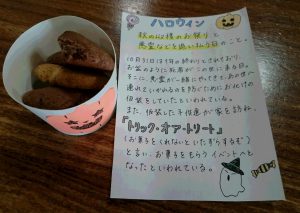 ハロウィン
秋の収穫のお祭りと
悪霊などを追い払う日のこと。
10月31日は1年の終わりとされており、
お盆のように死者がこの世に来る日。
そこに、悪霊が一緒にやってき、あの世へ
連れていかれるのを防ぐためにおばけの
仮装をしていたといわれている。
また、仮装した子供達が家を訪ね、
「トリック・オア・トリート」
(お菓子をくれないといたずらするぞ)
と言い、お菓子をもらうイベントへと
なったといわれている。